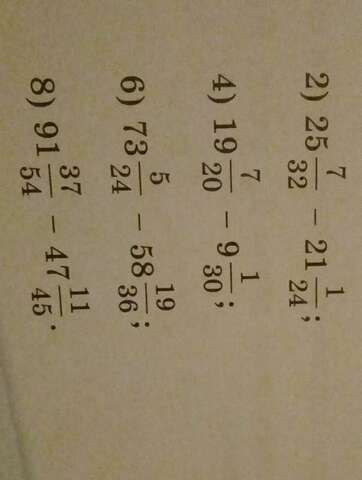 2) 25 7/32 − 21 1/24;
4) 19 7/20 − 9 1/30;
6) 73 5/24 − 58 19/36;
8) 91 37/54 − 47 11/45.